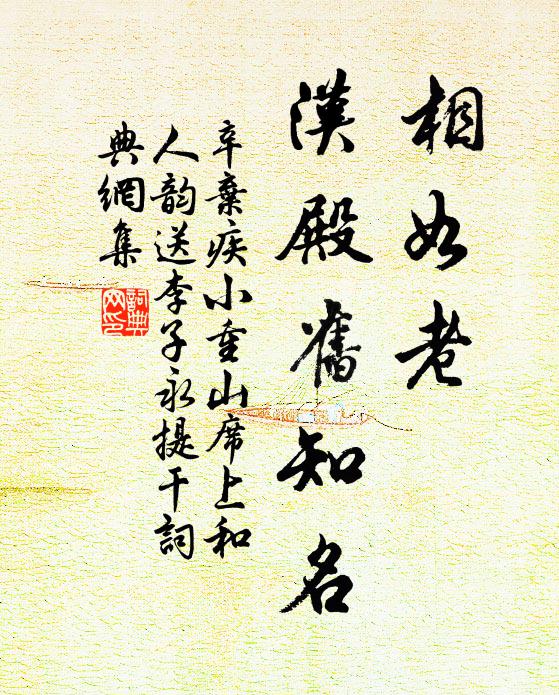 相如老
漢殿舊知名
辛棄疾小重山席上和
人韵送李子永提干詞
典網集
詞典
网印